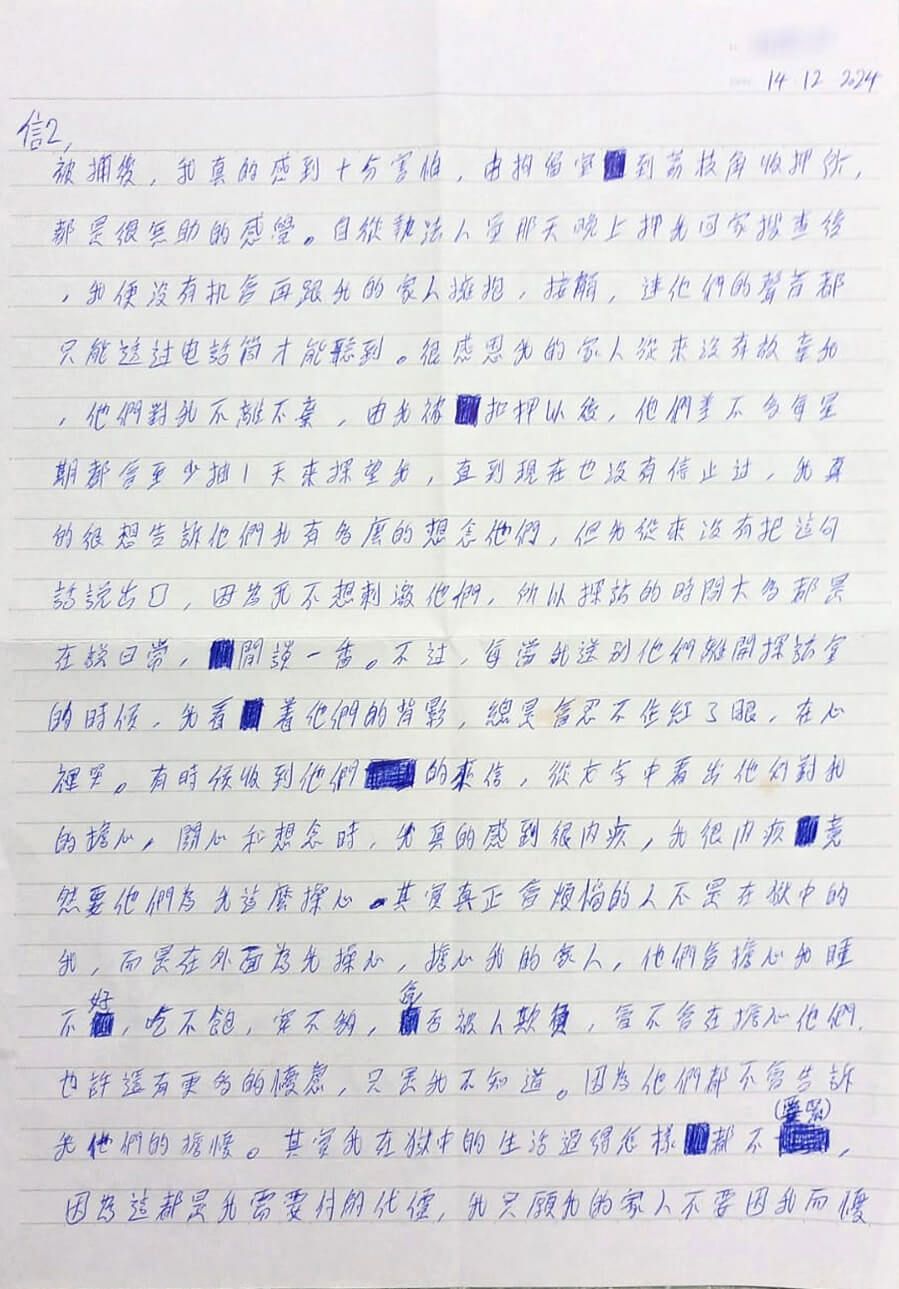 14 12 2024
信2,
被捕後，我真的感到十分害怕，由拘留室到荔枝角收押所，
都是很無助的感覺。自從執法人員那天晚上押我回家搜查後
，我便沒有机会再跟我的家人擁抱，接觸，連他們的聲音都
只能透过电話筒才能聽到。很感恩我的家人從來沒有放棄我
，他們對我不離不棄，由我被扣押以後，他們差不多每星
期都會至少抽1天來探望我，直到現在也沒有停止过，我真
的很想告訴他們我有多麼的想念他們，但我從來沒有把這句
話說出口，因為我不想刺激他們，所以探訪的時間大多都是
在說日常，閒談一番。不过，每當我送別他們離開探訪室
的時候，我看着他們的背影，總是會忍不住紅了眼，在心
裡哭。有時候收到他們的來信，從文字中看出他们對我
的擔心，關心和想念時，我真的感到很內疚，我很內疚竟
然要他們為我這麼操心。其實真正會煩惱的人不是在獄中的
我，而是在外面為我操心，擔心我的家人，他們會擔心我睡
不好，吃不飽，穿不夠，會否被人欺負，會不會在擔心他們.
也許還有更多的憂慮，只是我不知道。因為他們都不會告訴
我他們的擔憂。其實我在獄中的生活過得怎樣都不(要緊)，
因為這都是我需要付的代價，我只願我的家人不要因我而憂